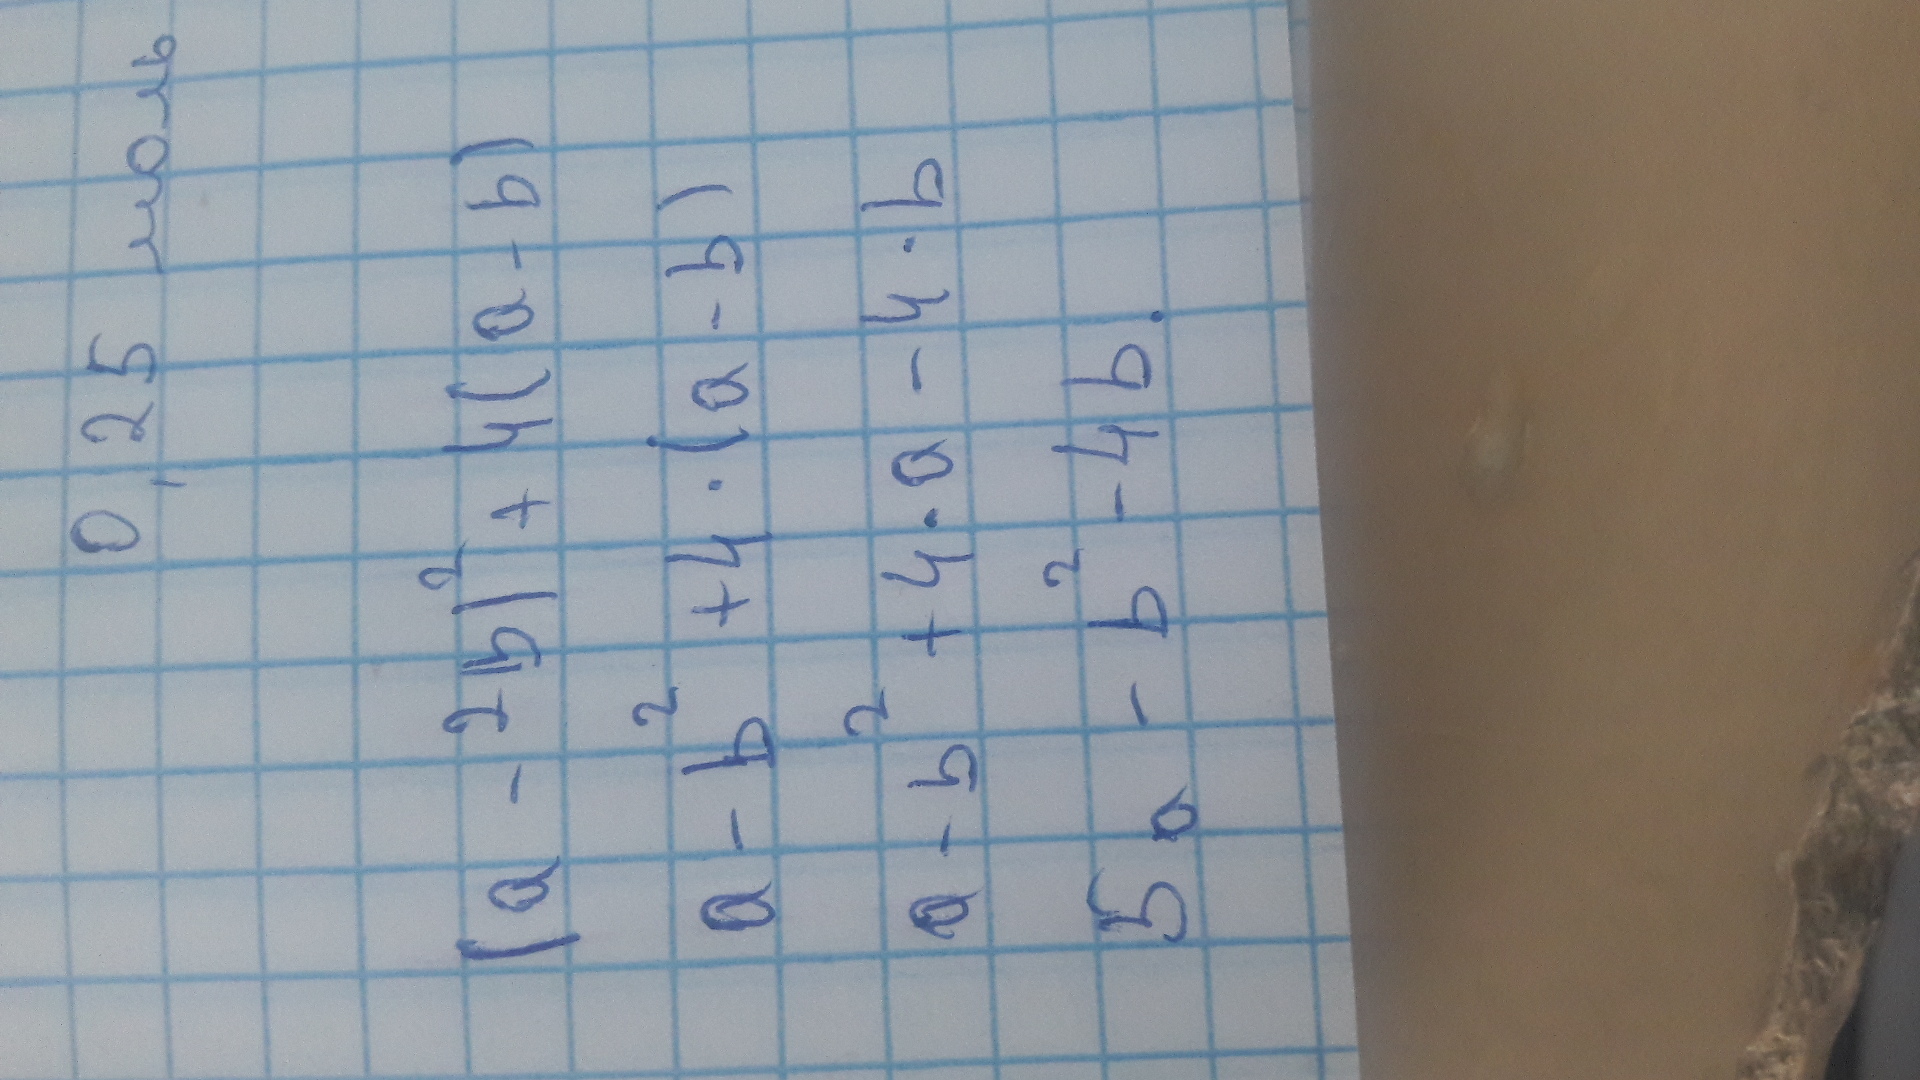 0,25 моль
(a - 2b)² + 4(a - b)
a - b² + 4 · (a - b)
a - b² + 4 · a - 4 · b
5a - b² - 4b.